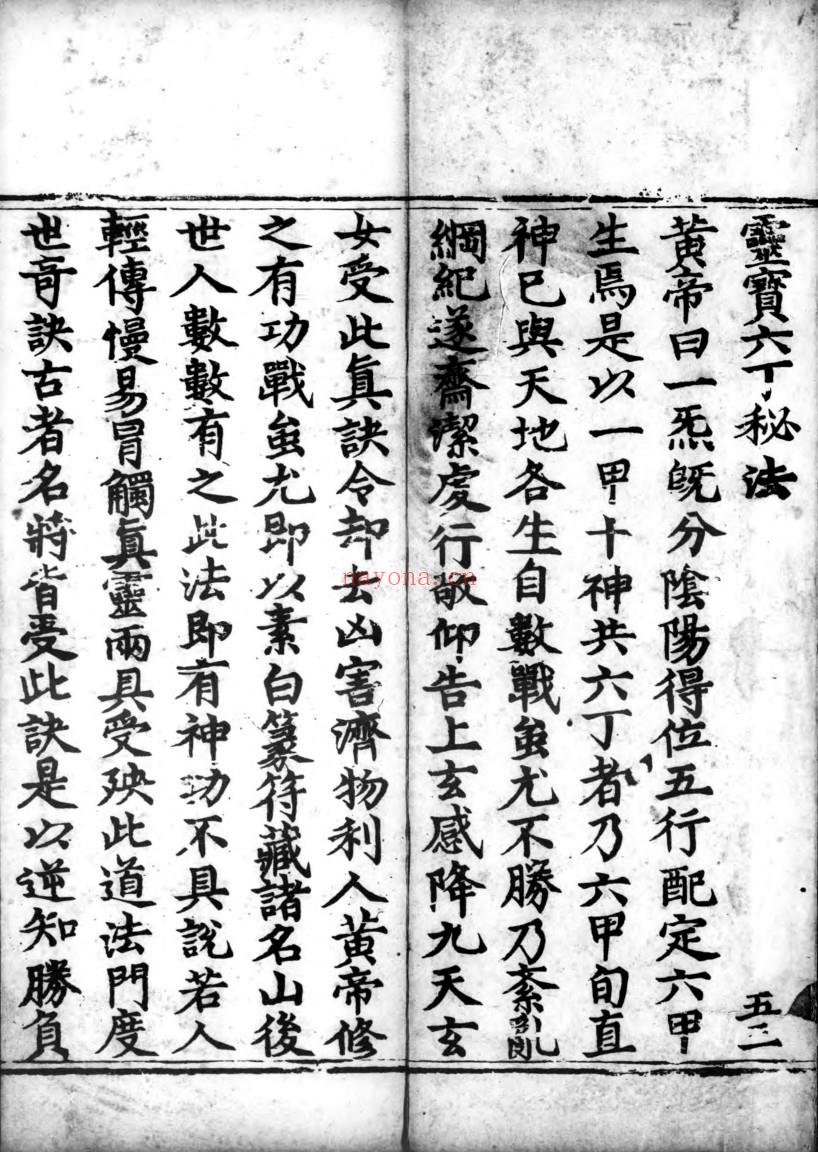 靈寶六丁秘法
五二
黃帝曰一炁既分陰陽得位五行配定六甲
生焉是以一甲十神共六丁者乃六甲旬直
神巳與天地各生自數戰蚩尤不勝乃紊亂
綱紀遂齋潔虔行敬仰告上玄感降九天玄
女受此眞訣令却去凶害濟物利人黃帝修
之有功戰蚩尤即以素白篆符藏諸名山後
世人數數有之此法即有神功不具說若人
輕傳慢易冒觸眞靈兩具受殃此道法門度
世奇訣古者名將皆受此訣是以逆知勝負
nayona.cn